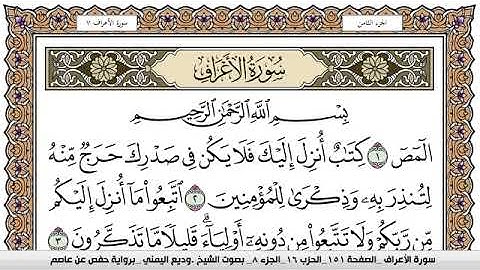 الجزء الثامن
سورة الأعراف ٧
سُورَةُ الأَعْرَافِ
بِسْمِ اللَّهِ الرَّحْمَٰنِ الرَّحِيمِ
الٓمٓصٓ ١ كِتَٰبٌ أُنزِلَ إِلَيْكَ فَلَا يَكُن فِى صَدْرِكَ حَرَجٌ مِّنْهُ
لِتُنذِرَ بِهِۦ وَذِكْرَىٰ لِلْمُؤْمِنِينَ ٢ ٱتَّبِعُوا۟ مَآ أُنزِلَ إِلَيْكُم
مِّن رَّبِّكُمْ وَلَا تَتَّبِعُوا۟ مِن دُونِهِۦٓ أَوْلِيَآءَ ۗ قَلِيلًا مَّا تَذَكَّرُونَ ٣
سورة الأعراف _ الصفحة ١٥١ _ الحزب ١٦ _ الجزء ٨ _ بصوت الشيخ .وديع اليمني _ برواية حفص عن عاصم